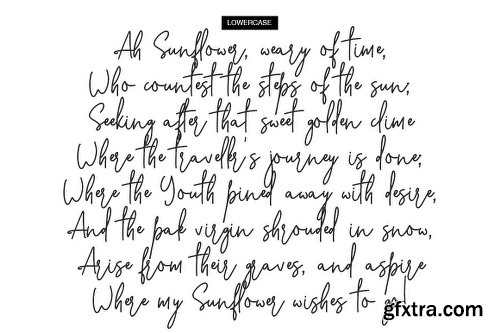 LOWERCASE
Ah Sunflower, weary of time,
Who countest the steps of the sun;
Seeking after that sweet golden clime
Where the traveller's journey is done;
Where the Youth pined away with desire,
And the pale virgin shrouded in snow,
Arise from their graves, and aspire
Where my Sunflower wishes to
gfxtra.com